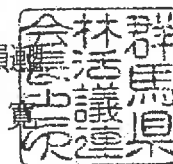 群馬県
林活議連
会長之印
寛